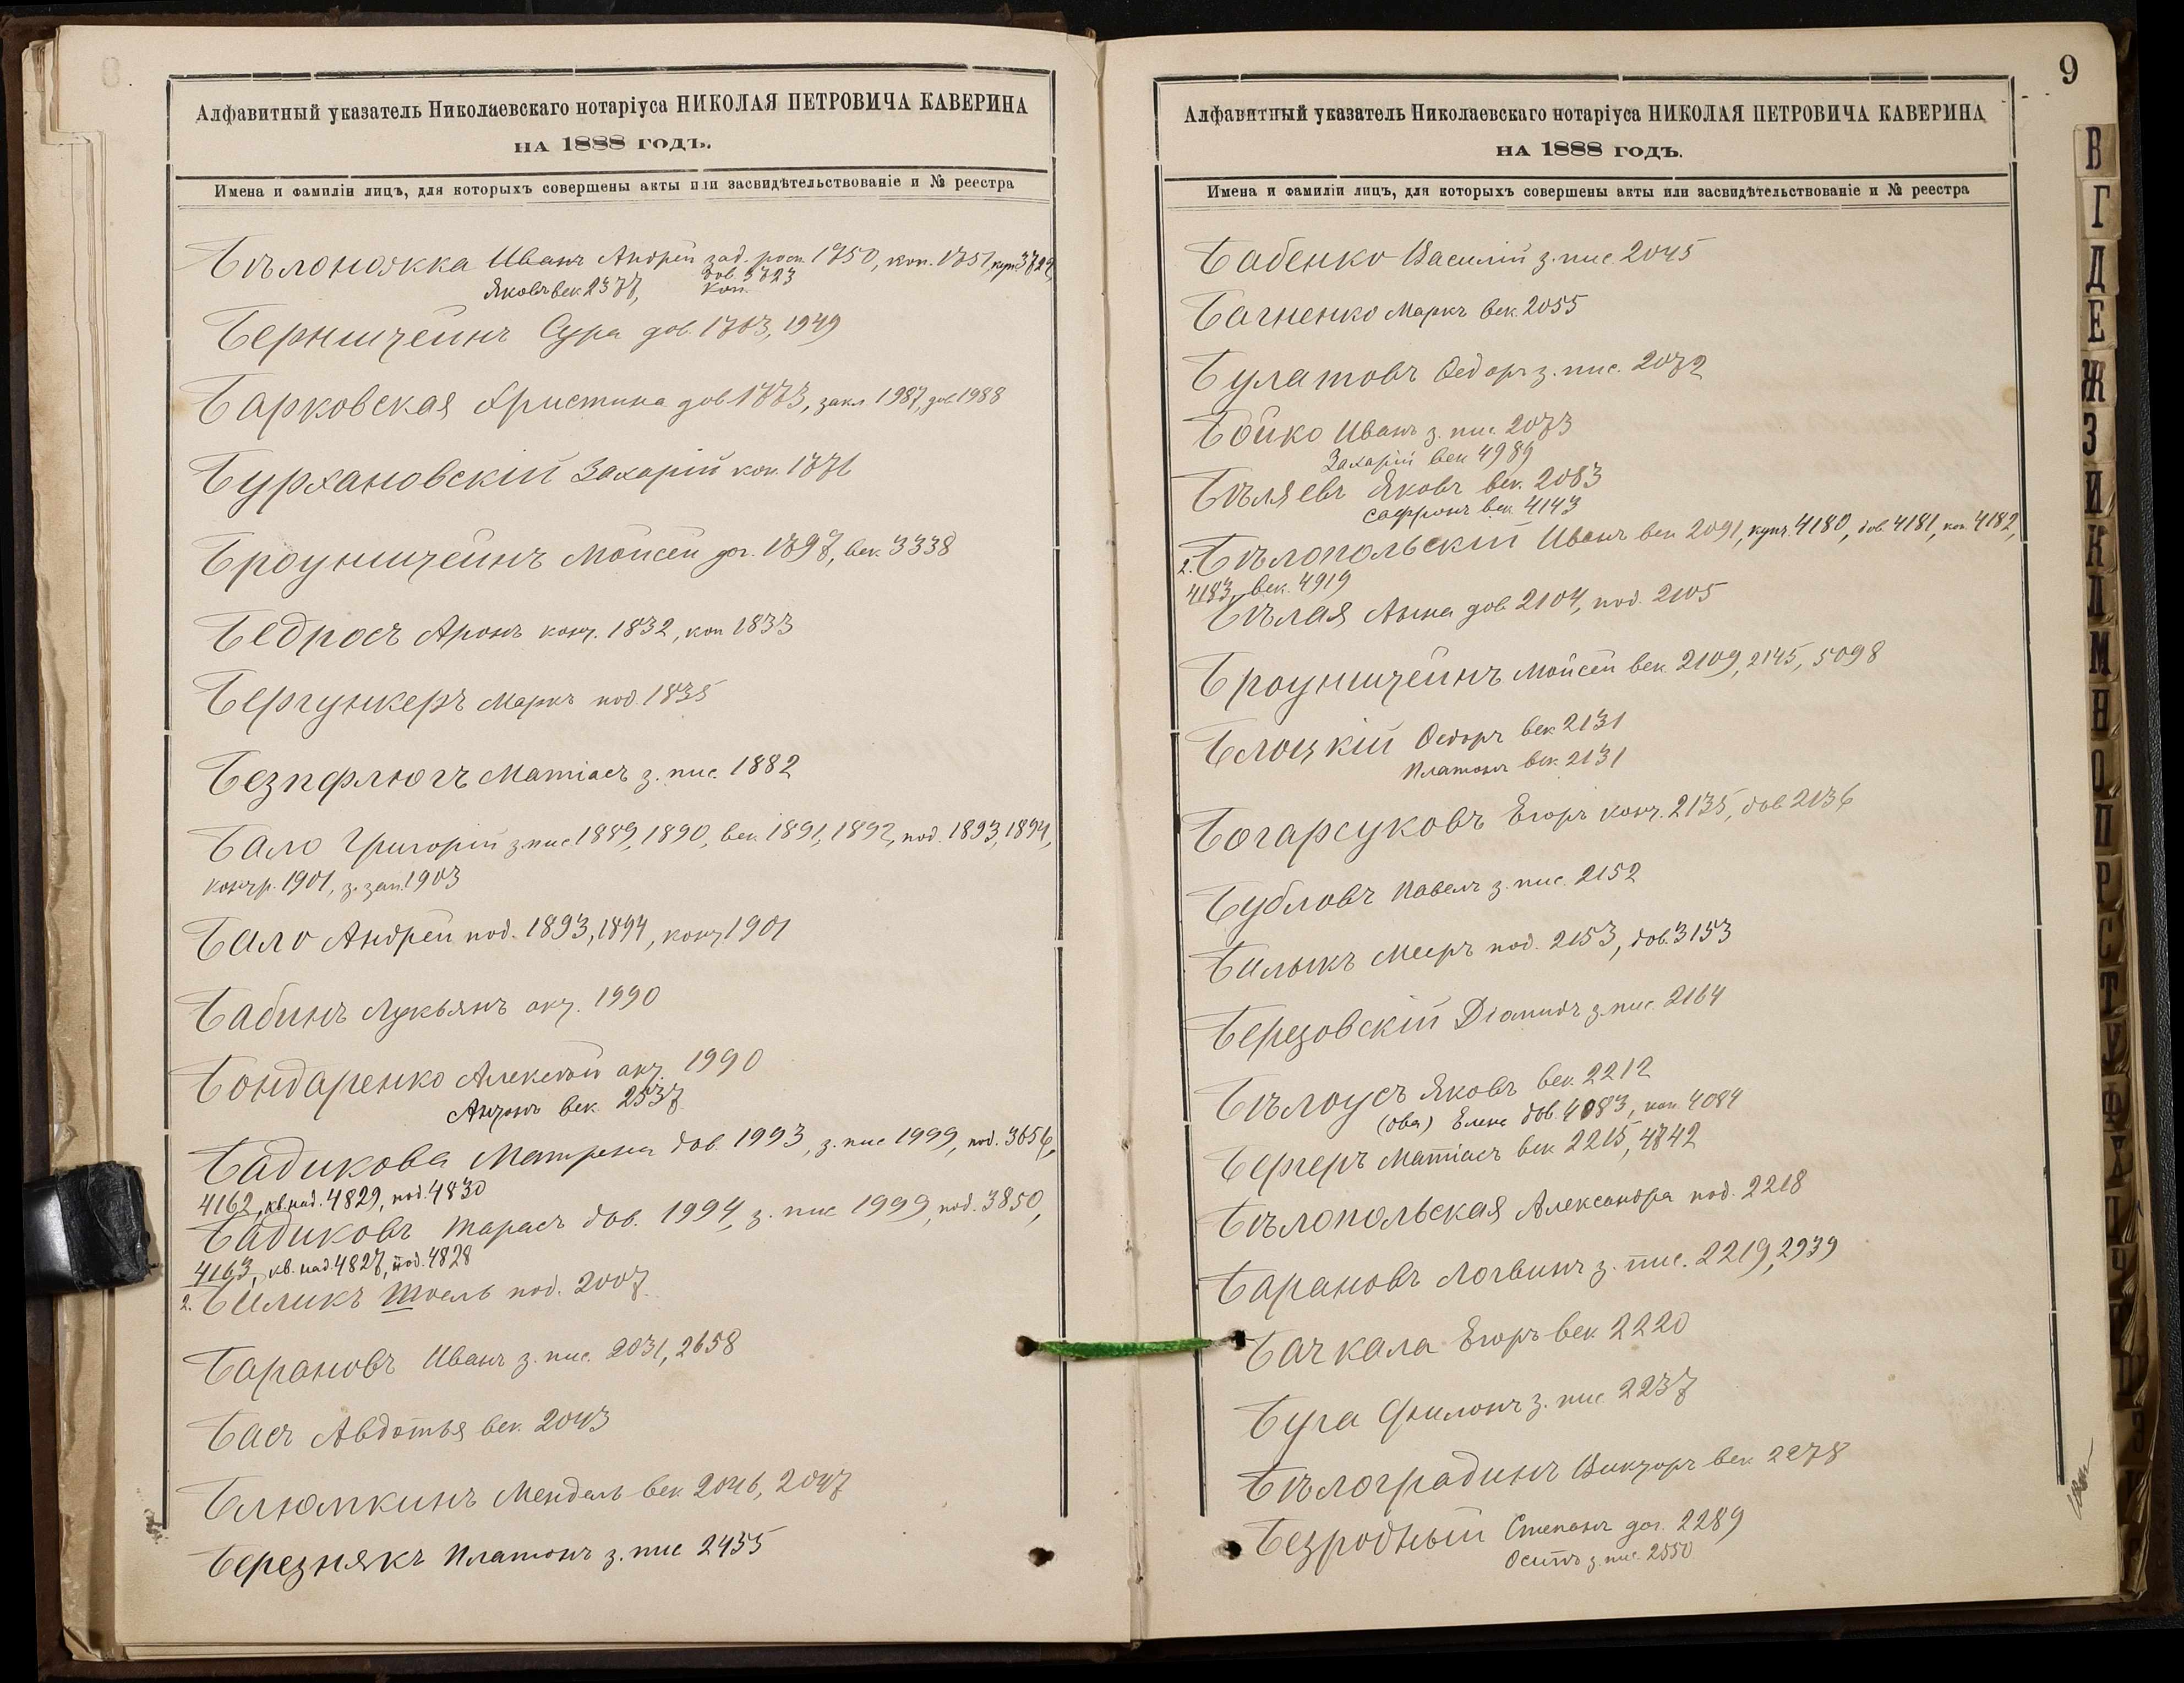 Алфавитный указатель Николаевскаго нотаріуса НИКОЛАЯ ПЕТРОВИЧА КАВЕРИНА
НА 1888 ГОДЪ.
Имена и фамиліи лицъ, для которыхъ совершены акты или засвидѣтельствованіе и № реестра
Бѣлоножка Иванъ Андрей зад. росп. 1750, коп. 1751, куп. 3722,
Яковъ век. 2377, дов. 3723
коп.
Бернштейнъ Сура дов. 1763, 1949
Барковская Христина дов. 1773, закл. 1987, дов. 1988
Бурхановскій Захарій коп. 1776
Броунштейнъ Мойсей дог. 1797, век. 3338
Бедросъ Аронъ конт. 1832, коп 1833
Бергункеръ Маркъ под. 1835
Безпфлюгъ Матіасъ з. пис. 1882
Бало Григорій з. пис 1889, 1890, век. 1891, 1892, под. 1893, 1894,
контр. 1901, з. зап. 1903
Бало Андрей под. 1893, 1894, конт 1901
Бабинъ Лукьянъ акт. 1990
Бондаренко Алексѣй акт. 1990
Антонъ век. 2537
Бадикова Матрена дов. 1993, з. пис 1999, под. 3656,
4162, кв. над. 4829, под. 4830
Бадиковъ Тарасъ дов. 1994, з. пис 1999, под. 3850,
4163, кв. над. 4827, под. 4828
2. Биликъ Шоель под. 2007
Барановъ Иванъ з. пис. 2031, 2658
Басъ Авдотья век. 2043
Блюмкинъ Мендель век 2046, 2047
Березнякъ Платонъ з. пис 2455
9
Алфавитный указатель Николаевскаго нотаріуса НИКОЛАЯ ПЕТРОВИЧА КАВЕРИНА
НА 1888 ГОДЪ.
Имена и фамиліи лицъ, для которыхъ совершены акты или засвидѣтельствованіе и № реестра
Бабенко Василій з. пис. 2045
Багненко Маркъ век. 2055
Булатовъ Ѳедоръ з. пис. 2072
Бойко Иванъ з. пис. 2073
Захарій век 4989
Бѣляевъ Яковъ век. 2083
Сафронъ век. 4143
2. Бѣлопольскій Иванъ век 2091, купч. 4180, дов. 4181, коп. 4182,
4183, век. 4919
Бѣлая Анна дов. 2104, под. 2105
Броунштейнъ Мойсей век. 2109, 2145, 5098
Блоцкій Ѳедоръ век 2131
Платонъ век. 2131
Богарсуковъ Егоръ конт. 2135, дов. 2136
Бубловъ Павелъ з. пис. 2152
Билыкъ Мееръ под. 2153, дов. 3153
Березовскій Діамидъ з. пис. 2164
Бѣлоусъ Яковъ век. 2212
(ова) Елена дов. 4083, коп. 4084
Бергеръ Матіасъ век 2215, 4742
Бѣлопольская Александра под. 2218
Барановъ Логвинъ з. пис. 2219, 2939
Бачкала Егоръ век 2220
Буга Филонъ з. пис 2237
Бѣлоградинъ Викторъ век 2278
Безродный Степанъ дог. 2289
Осипъ з. пис. 2550
В
Г
Д
Е
Ж
З
И
К
Л
М
Н
О
П
Р
С
Т
У
Ф
Х